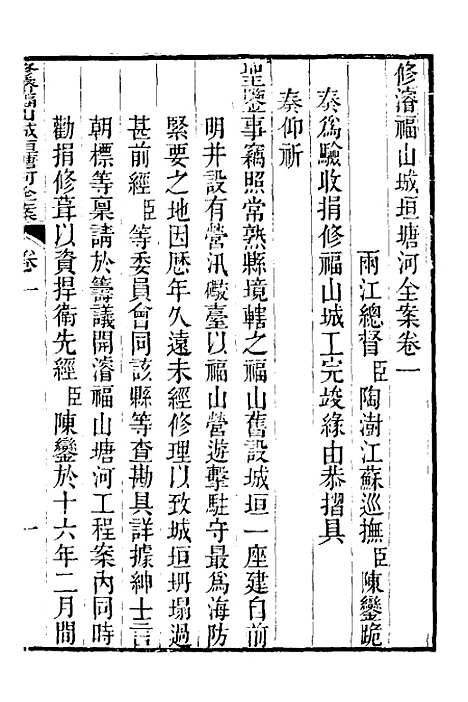 修濬福山城垣塘河全案卷一
兩江總督臣陶澍江蘇巡撫臣陳鑾跪
奏爲驗收捐修福山城工完竣緣由恭摺具
奏仰祈
聖鑒事竊照常熟縣境轄之福山舊設城垣一座建自前
明并設有營汛礮臺以福山營遊擊駐守最爲海防
緊要之地因歷年久遠未經修理以致城垣坍塌過
甚前經臣等委員會同該縣等查勘具詳據紳士言
朝標等稟請於籌議開濬福山塘河工程案內同時
勸捐修葺以資捍衛先經臣陳鑾於十六年二月間
修濬福山城垣塘河全案
卷一
一